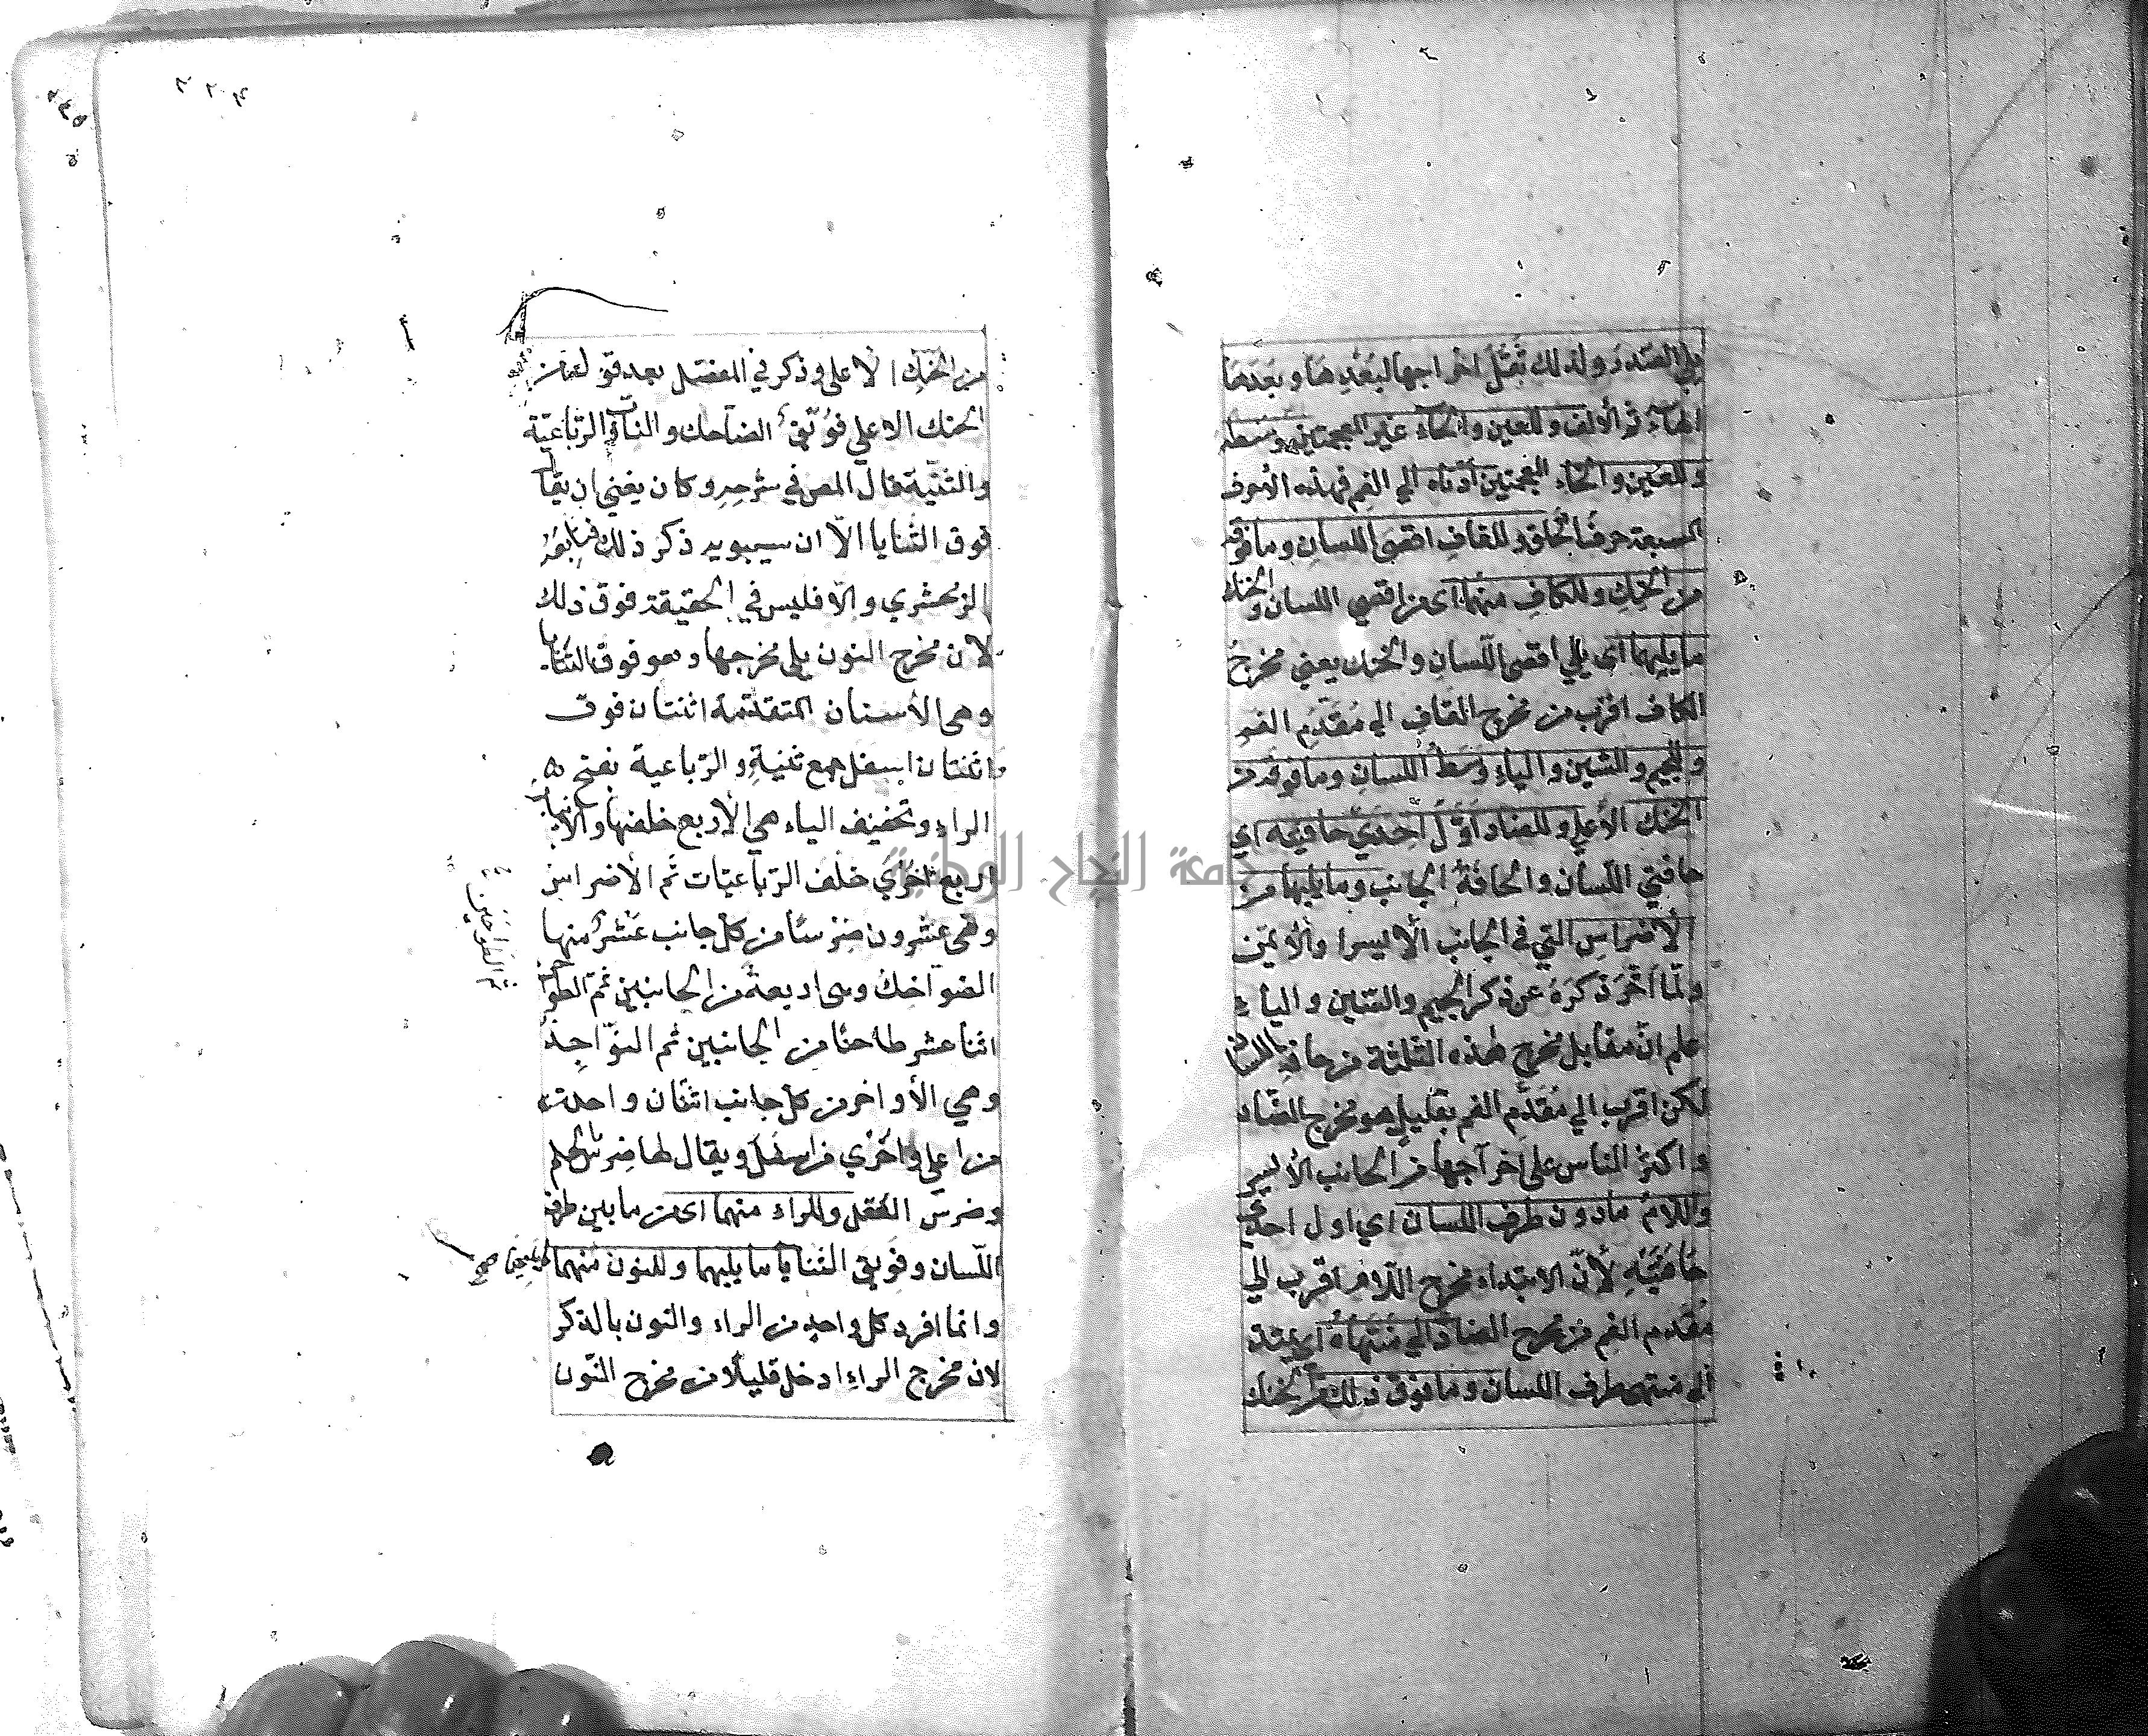 يلي الصدر ولذلك ثقل اخراجها لبعدها وبعدها
الهاء ثم الألف وللعين والحاء غير المعجمتين وسطه
وللغين والخاء المعجمتين أدناه الي الفم فهذه الأحرف
السبعة حرف الحلق وللقاف اقصى اللسان وما فوقه
من الحنك وللكاف منهما اى من اقصي اللسان والحنك
ما يليهما اى يلي اقصى اللسان والحنك يعني مخرج
الكاف اقرب من مخرج القاف الي مقدم الفم
وللجيم والشين والياء وسط اللسان وما فوقه من
الحنك الأعلى وللضاد اوّل احدي حافتيه اي
حافتي اللسان والحافة الجانب وما يليها من
الأضراس التي في الجانب الأيسر او الأيمن
ولمّا اخّر ذكره عن ذكر الجيم والشين والياء
علم انّ مقابل مخرج هذه الثلثة من حافة اللسان
لكن اقرب الي مقدّم الفم بقليل هو مخرج الضاد
واكثر الناس على اخراجها من الجانب الأيسر
واللام ما دون طرف اللسان اي اول احدي
حافتيه لأنّ الابتداء مخرج اللام اقرب الي
مقدم الفم من مخرج الضاد الي منتهاه اي يمتد
الي منتهى طرف اللسان وما فوق ذلك من الحنك
٢٢٤
٢٤٥
من الحنك الأعلى وذكر في المفصل بعد قوله من
الحنك الاعلي فويق الضاحك والناب والرباعيّة
والثنيّة قال المص في شرحه وكان يغني ان يقال
فوق الثنايا الاّ ان سيبويه ذكر ذلك فتابعه
الزمخشري والاّ فليس في الحقيقة فوق ذلك
لأن مخرج النون يلي مخرجها وهو فوق الثنايا
وهي الأسنان المتقدّمة اثنتان فوق
واثنتان اسفل جمع ثنية والرّباعية بفتح
الراء وتخفيف الياء هي الأربع خلفها والأنياب
اربع اخري خلف الرّباعيّات ثم الأضراس
وهي عشرون ضرسًا من كل جانب عشر منها
الضواحك وهى اربعة من الجانبين ثم الطواحن
اثنا عشر طاحنًا من الجانبين ثم النّواجذ
وهي الأواخر من كل جانب اثنان واحدة
من اعلي واخري من اسفل ويقال لها ضرس الحلم
وضرس العقل وللراء منهما اى من ما بين طرف
اللسان وفويق الثنايا ما يليهما وللنون منهما
وانما افرد كل واحد من الراء والنون بالذكر
لان مخرج الراء ادخل قليلًا من مخرج النّون
جامعة النجاح الوطنية